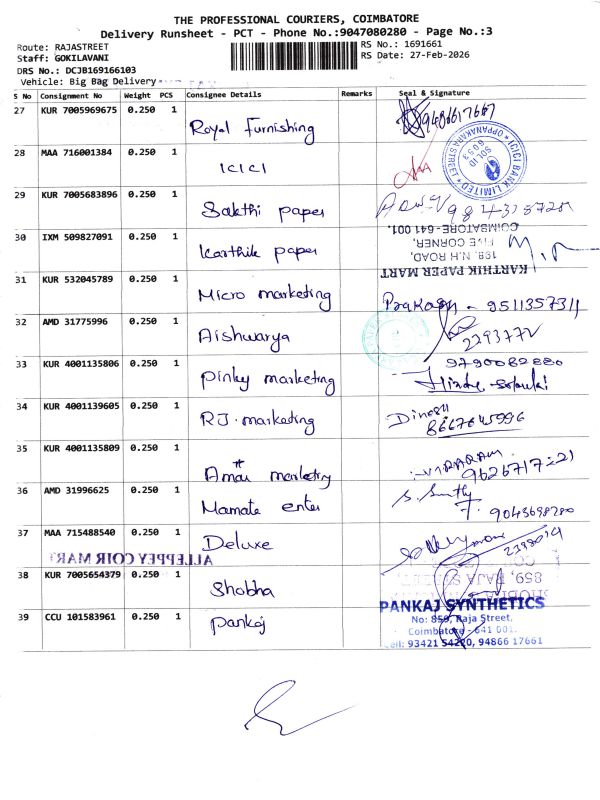 THE PROFESSIONAL COURIERS, COIMBATORE
Delivery Runsheet - PCT - Phone No.:9047080280 - Page No.:3
Route: RAJASTREET
Staff: GOKILAVANI
DRS No.: DCJB169166103
Vehicle: Big Bag Delivery
RS No.: 1691661
RS Date: 27-Feb-2026
S No Consignment No Weight PCS Consignee Details Remarks Seal & Signature
27 KUR 7005969675 0.250 1 Royal Furnishing 9486617667
28 MAA 716001384 0.250 1 ICICI
ICICI BANK LIMITED OPPANAKARA STREET
SOL ID
6053
29 KUR 7005683896 0.250 1 Sakthi paper
30 IXM 509827091 0.250 1 Karthik paper
KARTHIK PAPER MART
198, N.H ROAD,
FIVE CORNER,
COIMBATORE- 641 001.
31 KUR 532045789 1 Micro marketing Prakash - 9511357311
32 AMD 31775996 0.250 1 Aishwarya
33 KUR 4001135806 0.250 1 Pinky marketing 9790082880
34 KUR 4001139605 0.250 1 RJ. marketing Dinesh
8667645996
35 KUR 4001135809 0.250 1 Amar marketing
36 AMD 31996625 0.250 1 Mamate enter
9043698780
37 MAA 715488540 0.250 1 Deluxe
ALLEPPEY COIR MART
38 KUR 7005654379 0.250 1 Shobha
859, RAJA
39 CCU 101583961 0.250 1 Pankaj
PANKAJ SYNTHETICS
No: 859, Raja Street,
Coimbatore - 641 001.
Cell: 93421 54220, 94866 17661